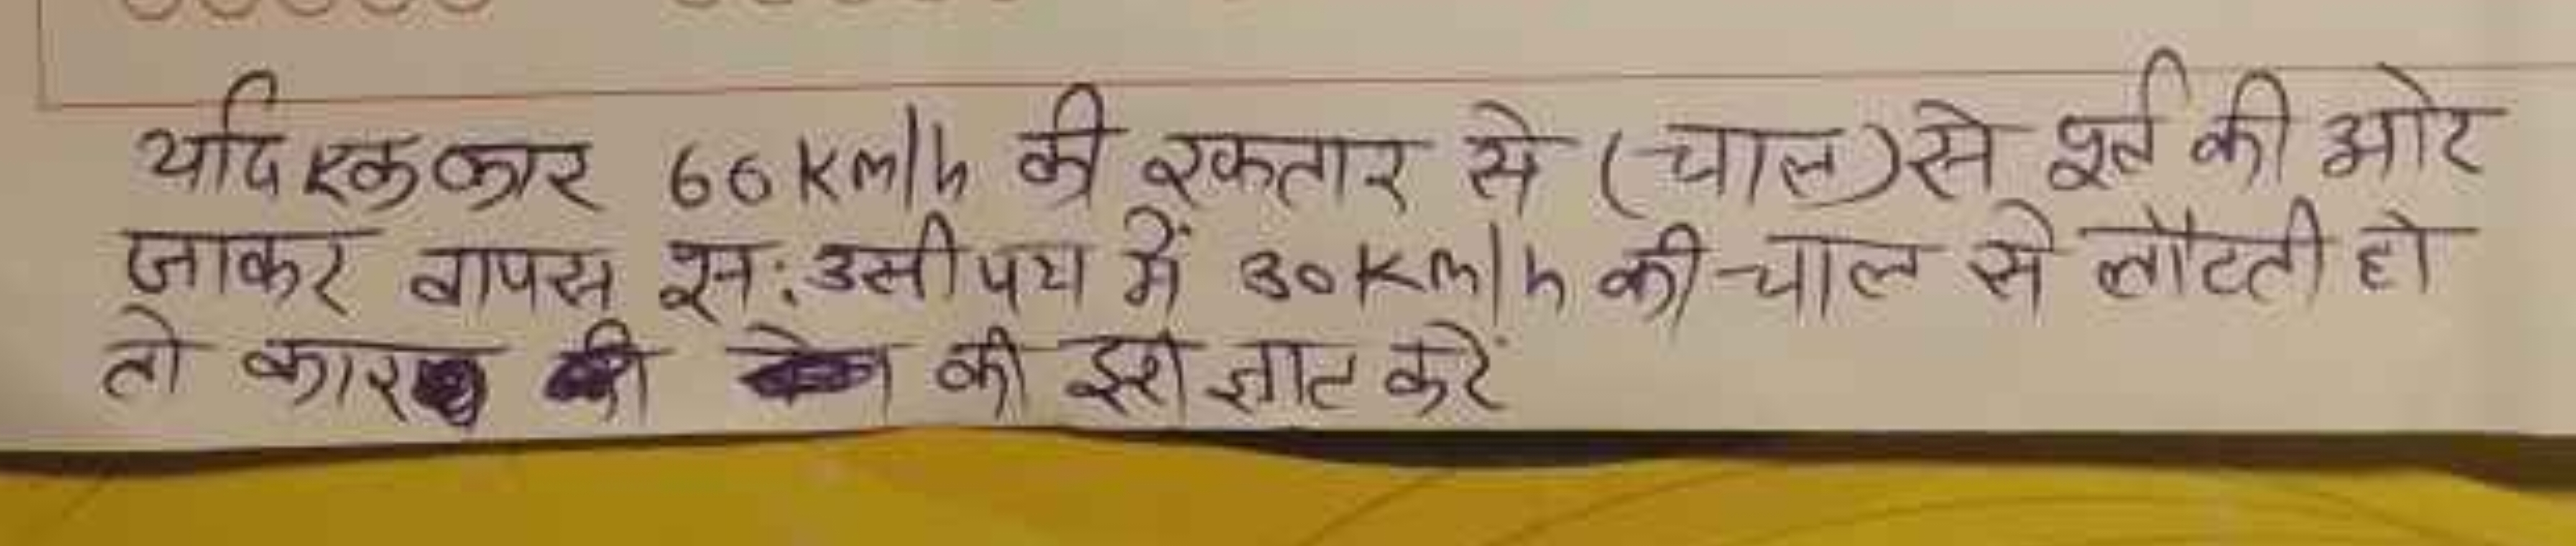 यदि एक कार 60 Km/h की रफतार से (चाल) से पूर्व की ओर
जाकर वापस पुन: उसी पथ में 30 Km/h की चाल से लौटती हो
तो कार की ज्ञात करें